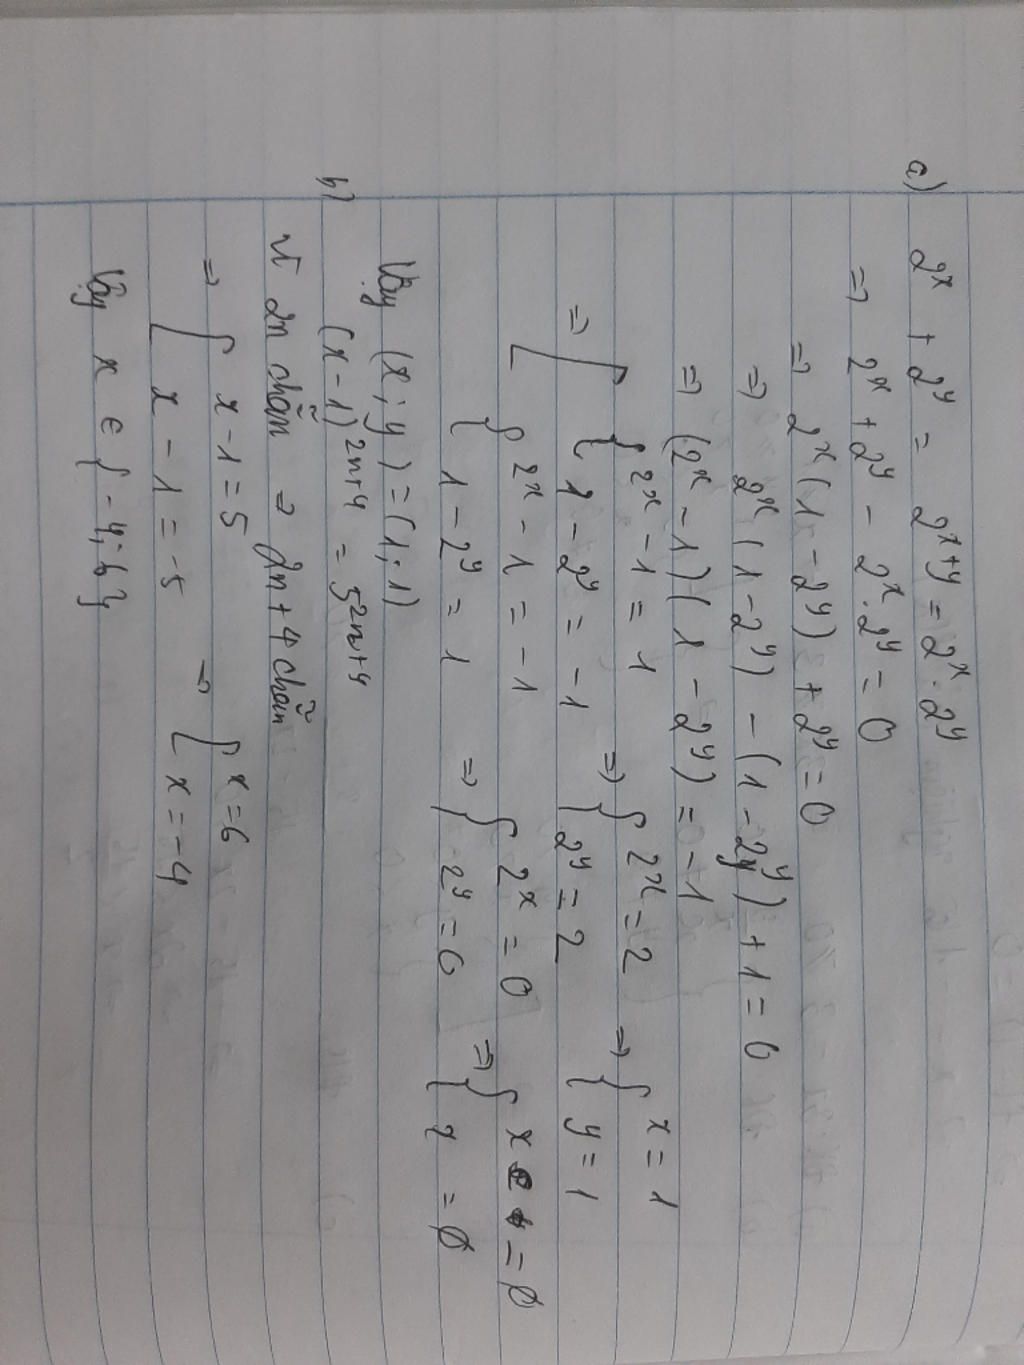 a) 2^x + 2^y = 2^{x+y} = 2^x . 2^y
=> 2^x + 2^y - 2^x . 2^y = 0
=> 2^x (1 - 2^y) + 2^y = 0
=> 2^x (1 - 2^y) - (1 - 2^y) + 1 = 0
=> (2^x - 1)(1 - 2^y) = -1
=> [ { 2^x - 1 = 1 => { 2^x = 2 => { x = 1
{ 1 - 2^y = -1 { 2^y = 2 { y = 1
{ 2^x - 1 = -1 => { 2^x = 0 => { x = ∅
{ 1 - 2^y = 1 { 2^y = 0 { = ∅
Vậy (x; y) = (1; 1)
b) (x - 1)^{2n+4} = 5^{2n+4}
Vì 2n chẵn => 2n + 4 chẵn
=> [ x - 1 = 5 => [ x = 6
x - 1 = -5 x = -4
Vậy x ∈ {-4; 6}